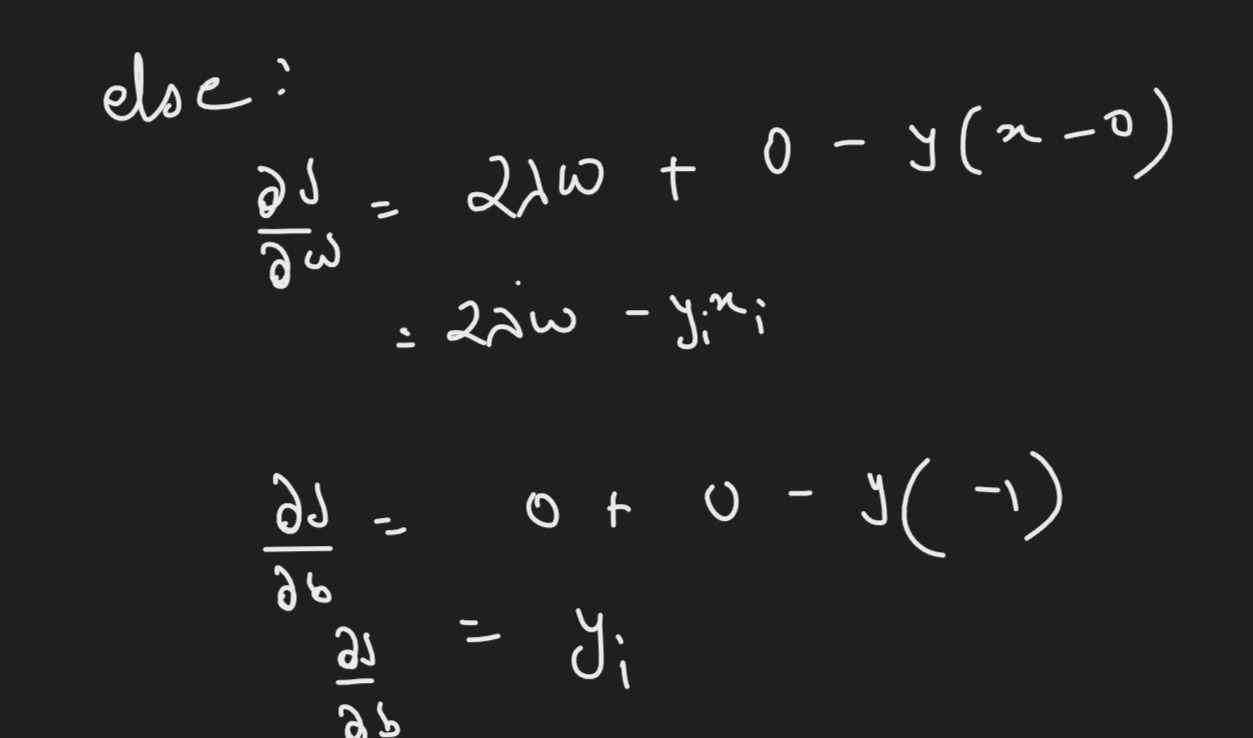 else:
∂J/∂w = 2λw + 0 - y(x - 0)
= 2λw - yᵢxᵢ
∂J/∂b = 0 + 0 - y(-1)
∂J/∂b = yᵢ